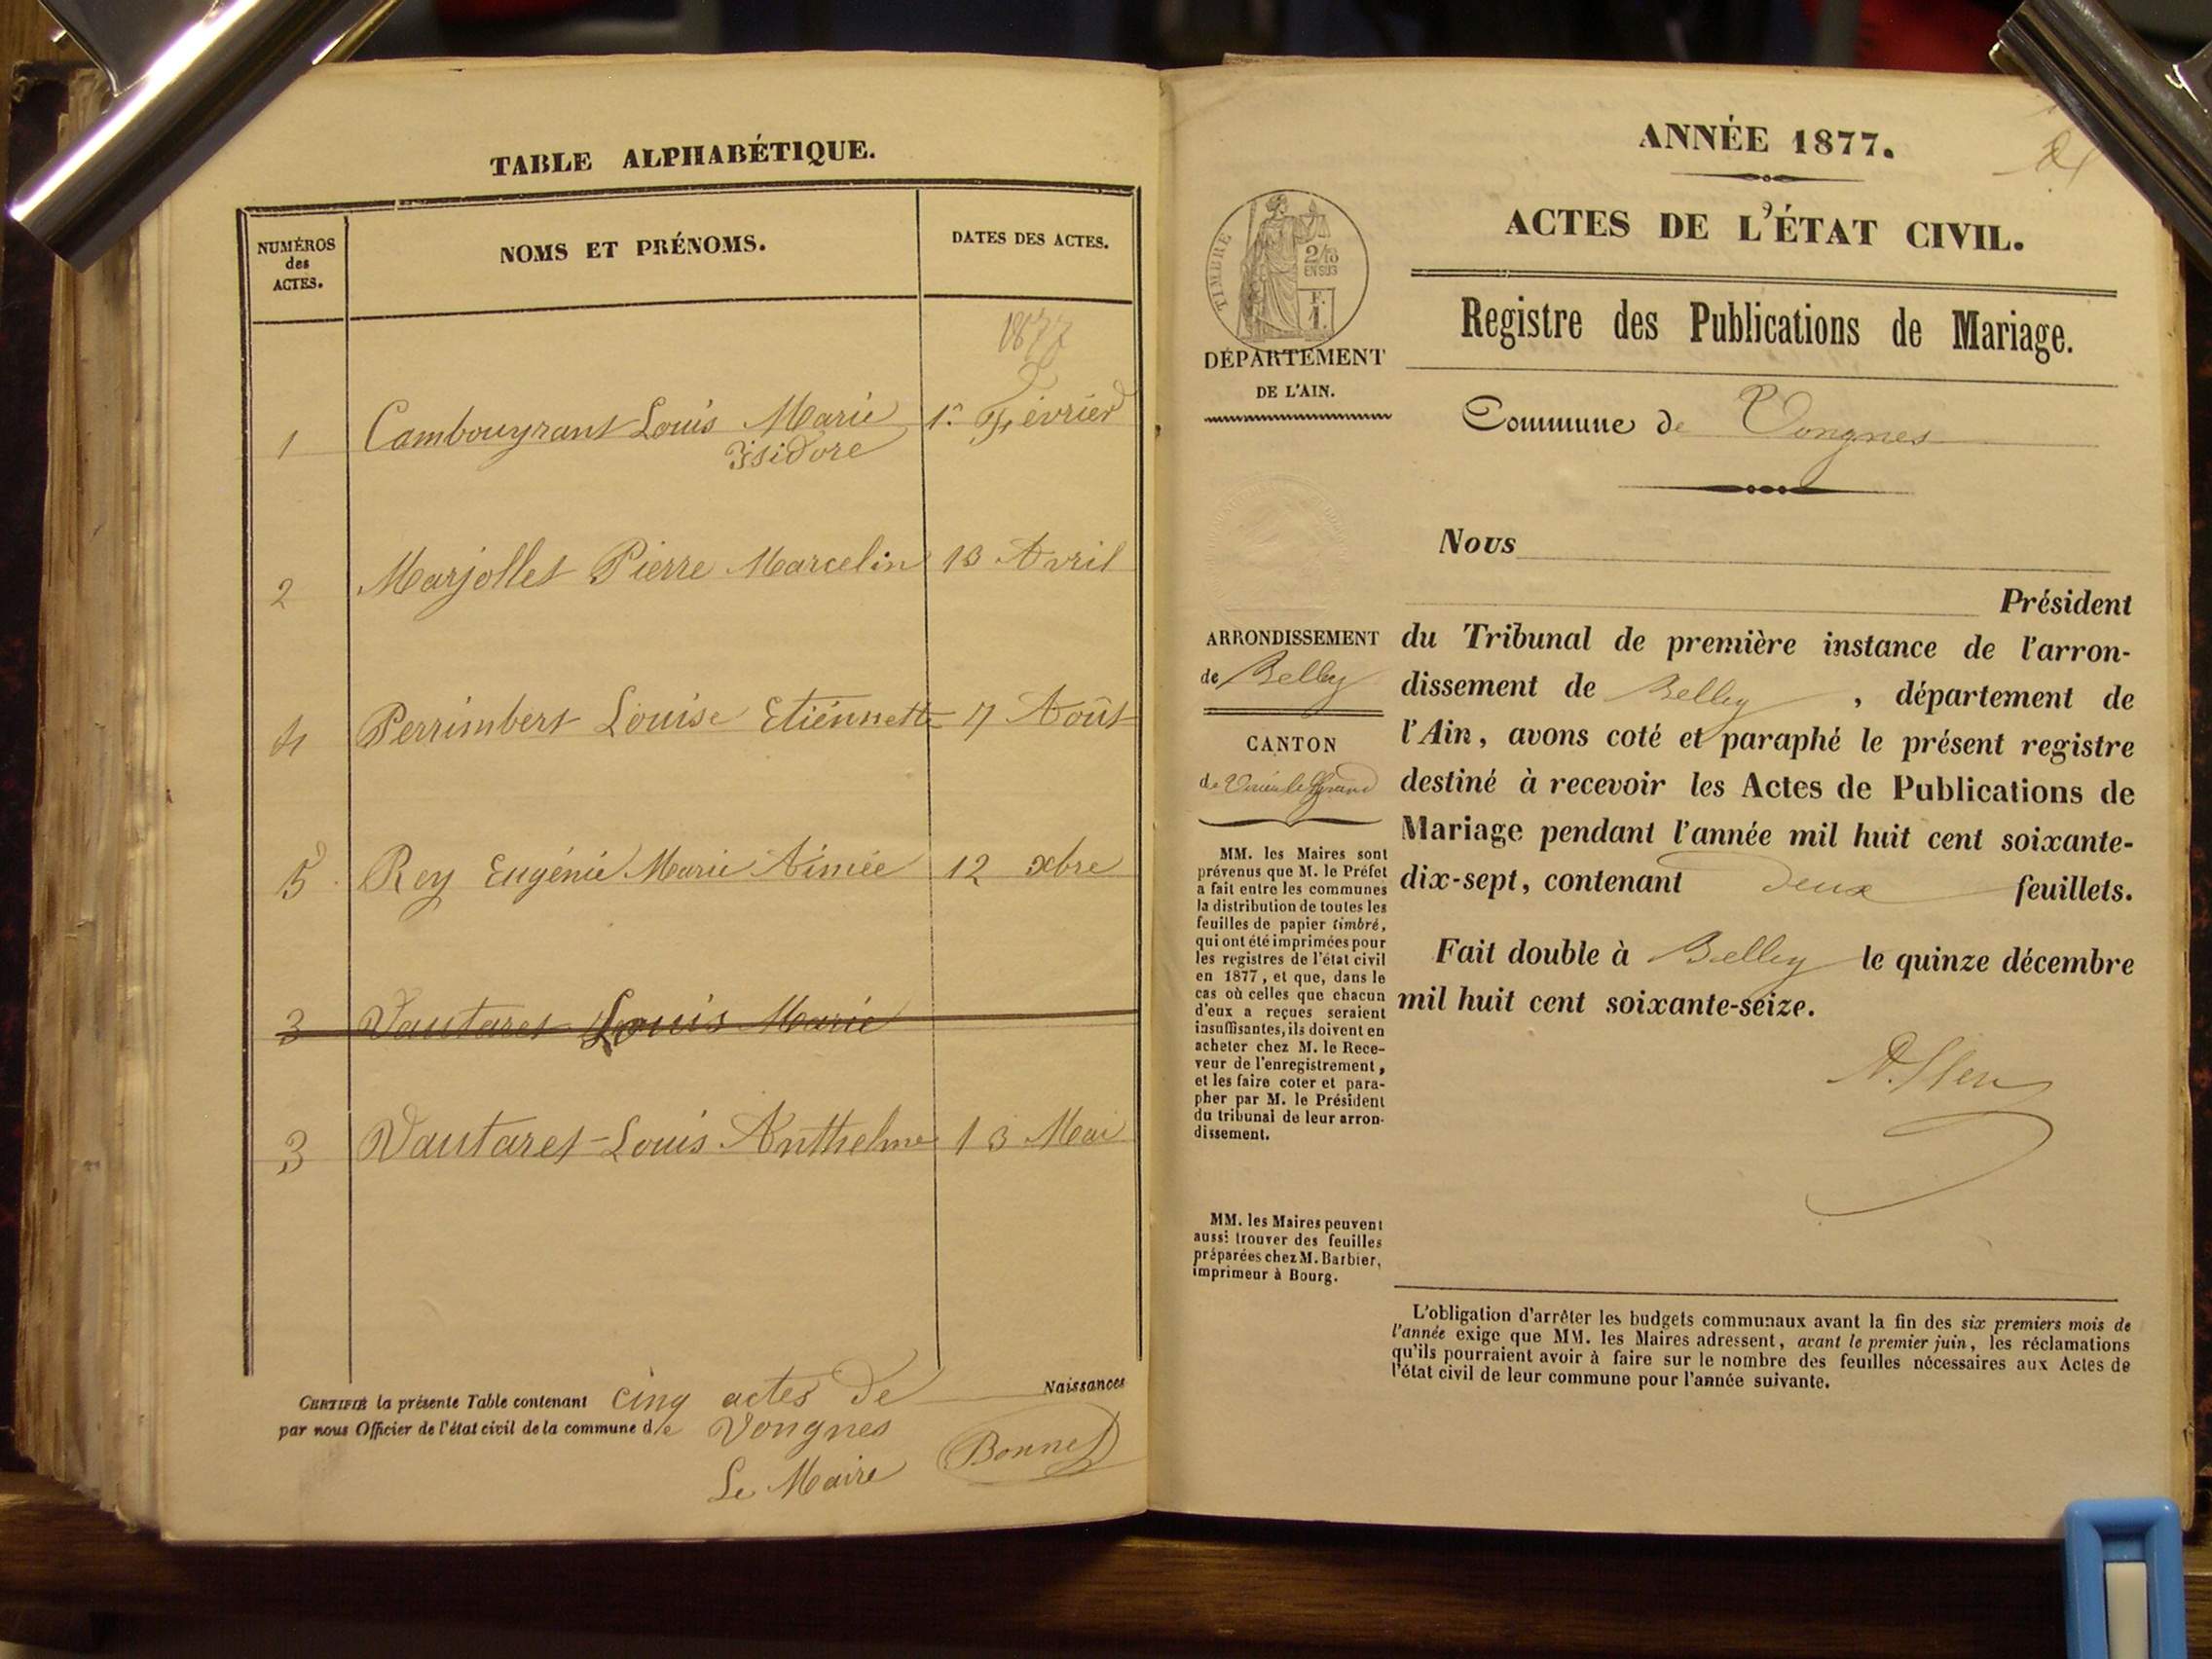 TABLE ALPHABÉTIQUE.
NUMÉROS des ACTES.
NOMS ET PRÉNOMS.
DATES DES ACTES.
1877
1 Cambouyrant Louis Marie 1er Février
Isidore
2 Marjollet Pierre Marcelin 13 Avril
4 Perrimbert Louise Etiénnette 7 Août
5 Rey Eugénie Marie Aimée 12 xbre
3 Vautaret Louis Marie
3 Vautaret Louis Anthelme 13 Mai
CERTIFIÉ la présente Table contenant cinq actes de Naissances
par nous Officier de l'état civil de la commune de Vongnes
Le Maire Bonnet
ANNÉE 1877.
ACTES DE L'ÉTAT CIVIL.
Registre des Publications de Mariage.
Commune de Vongnes
TIMBRE
2/10
EN SUS
F.
1.
DÉPARTEMENT
DE L'AIN.
ARRONDISSEMENT
de Belley
CANTON
de Virieu le Grand
MM. les Maires sont
prévenus que M. le Préfet
a fait entre les communes
la distribution de toutes les
feuilles de papier timbré,
qui ont été imprimées pour
les registres de l'état civil
en 1877, et que, dans le
cas où celles que chacun
d'eux a reçues seraient
insuffisantes, ils doivent en
acheter chez M. le Rece-
veur de l'enregistrement,
et les faire coter et para-
pher par M. le Président
du tribunal de leur arron-
dissement.
MM. les Maires peuvent
aussi trouver des feuilles
préparées chez M. Barbier,
imprimeur à Bourg.
Nous
Président
du Tribunal de première instance de l'arron-
dissement de Belley, département de
l'Ain, avons coté et paraphé le présent registre
destiné à recevoir les Actes de Publications de
Mariage pendant l'année mil huit cent soixante-
dix-sept, contenant deux feuillets.
Fait double à Belley le quinze décembre
mil huit cent soixante-seize.
L'obligation d'arrêter les budgets communaux avant la fin des six premiers mois de
l'année exige que MM. les Maires adressent, avant le premier juin, les réclamations
qu'ils pourraient avoir à faire sur le nombre des feuilles nécessaires aux Actes de
l'état civil de leur commune pour l'année suivante.